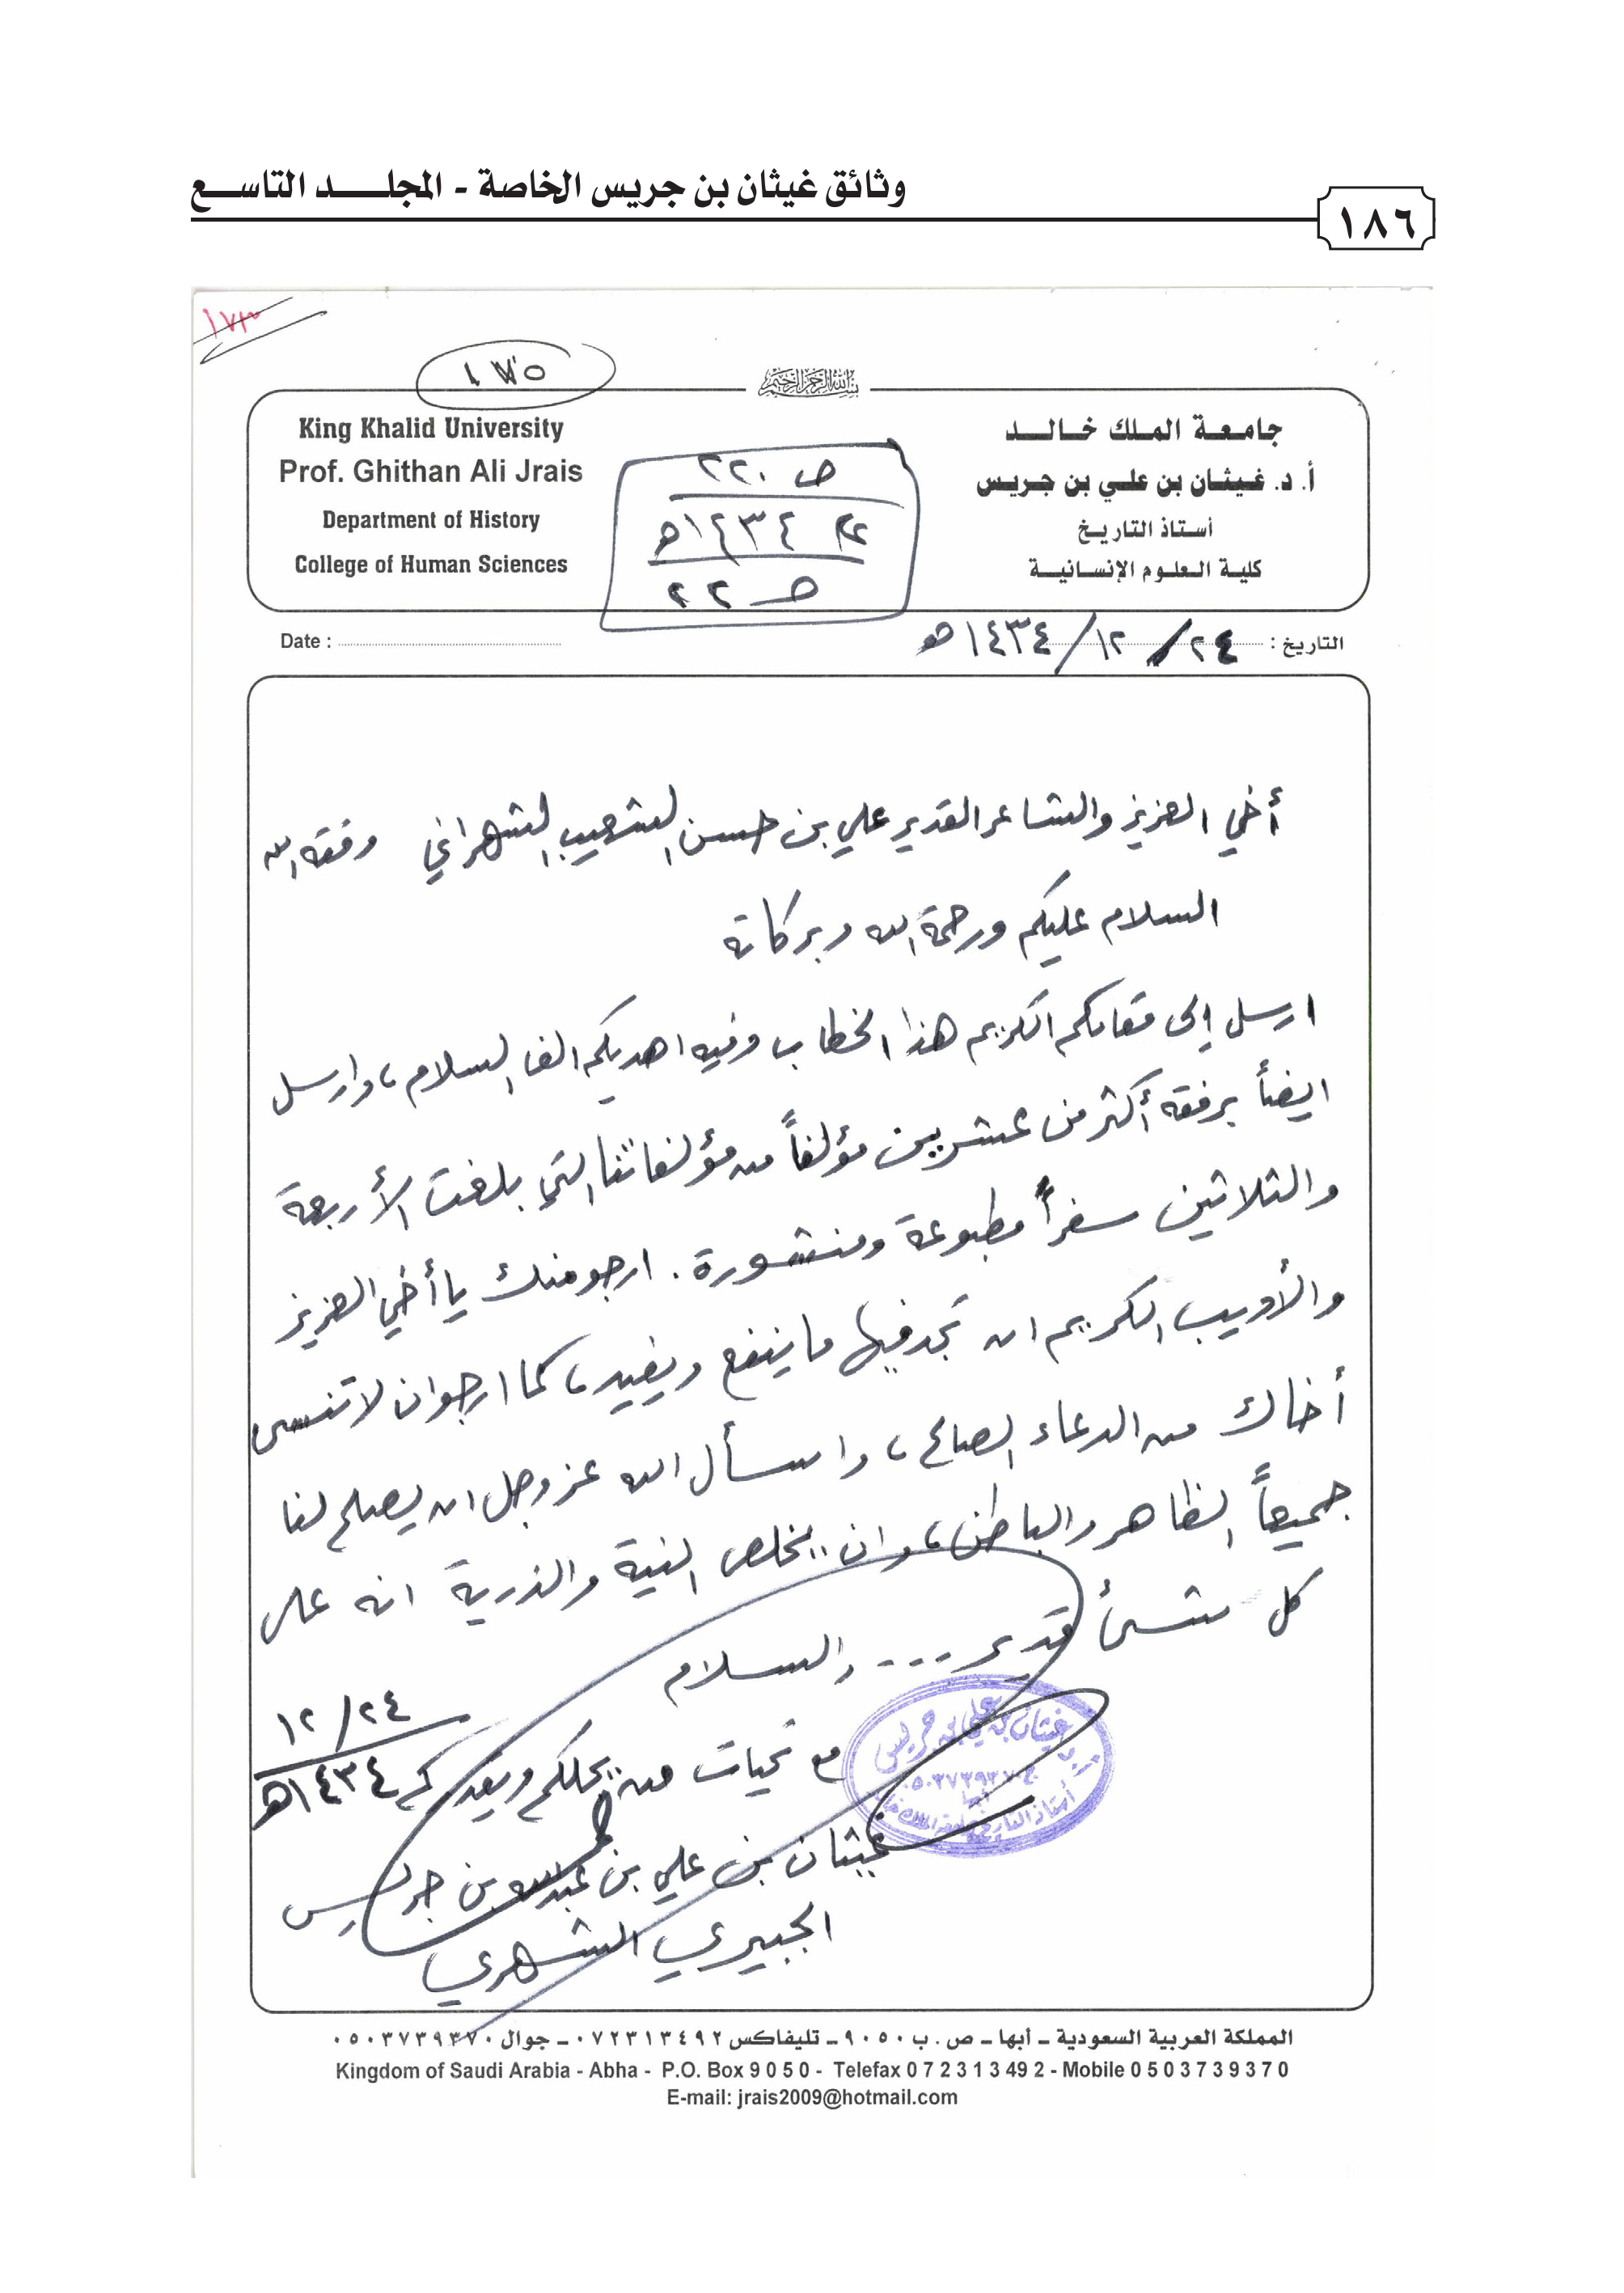 وثائق غيثان بن جريس الخاصة - المجلد التاسع
١٨٦
١٧٣
١٧٥
بسم الله الرحمن الرحيم
جامعة الملك خالد
أ. د. غيثان بن علي بن جريس
أستاذ التاريخ
كلية العلوم الإنسانية
King Khalid University
Prof. Ghithan Ali Jrais
Department of History
College of Human Sciences
ص ٢٢٠
١٤٣٤هـ
ص ٢٢
التاريخ : ٢٤ / ١٢ / ١٤٣٤هـ
Date :
أخي العزيز والشاعر القدير علي بن حسن الشعيب الشهراني وفقه الله
السلام عليكم ورحمة الله وبركاته
ارسل إلى مقامكم الكريم هذا الخطاب وفيه اهديكم الف السلام، وارسل
ايضاً برفقه أكثر من عشرين مؤلفاً من مؤلفاتنا التي بلغت الأربعة
والثلاثين سفراً مطبوعة ومنشورة. ارجو منك يا أخي العزيز
والأديب الكريم ان تجد فيها ما ينفع ويفيد، كما ارجو ان لا تنسى
أخاك من الدعاء الصالح، واسأل الله عز وجل ان يصلح لنا
جميعاً الظاهر والباطن، وان يخلص النية والذرية انه على
كل شئ قدير ... والسلام
مع تحيات من يجلكم ويقدركم
٢٤ / ١٢
١٤٣٤هـ
غيثان بن علي بن عبدالله بن جريس
الجبيري الشهري
غيثان بن علي بن جريس
٠٥٠٣٧٣٩٣٧٠
أبها
أستاذ التاريخ بجامعة الملك خالد
المملكة العربية السعودية - أبها - ص . ب ٩٠٥٠ - تليفاكس ٠٧٢٣١٣٤٩٢ - جوال ٠٥٠٣٧٣٩٣٧٠
Kingdom of Saudi Arabia - Abha - P.O. Box 9 0 5 0 - Telefax 0 7 2 3 1 3 49 2 - Mobile 0 5 0 3 7 3 9 3 7 0
E-mail: jrais2009@hotmail.com